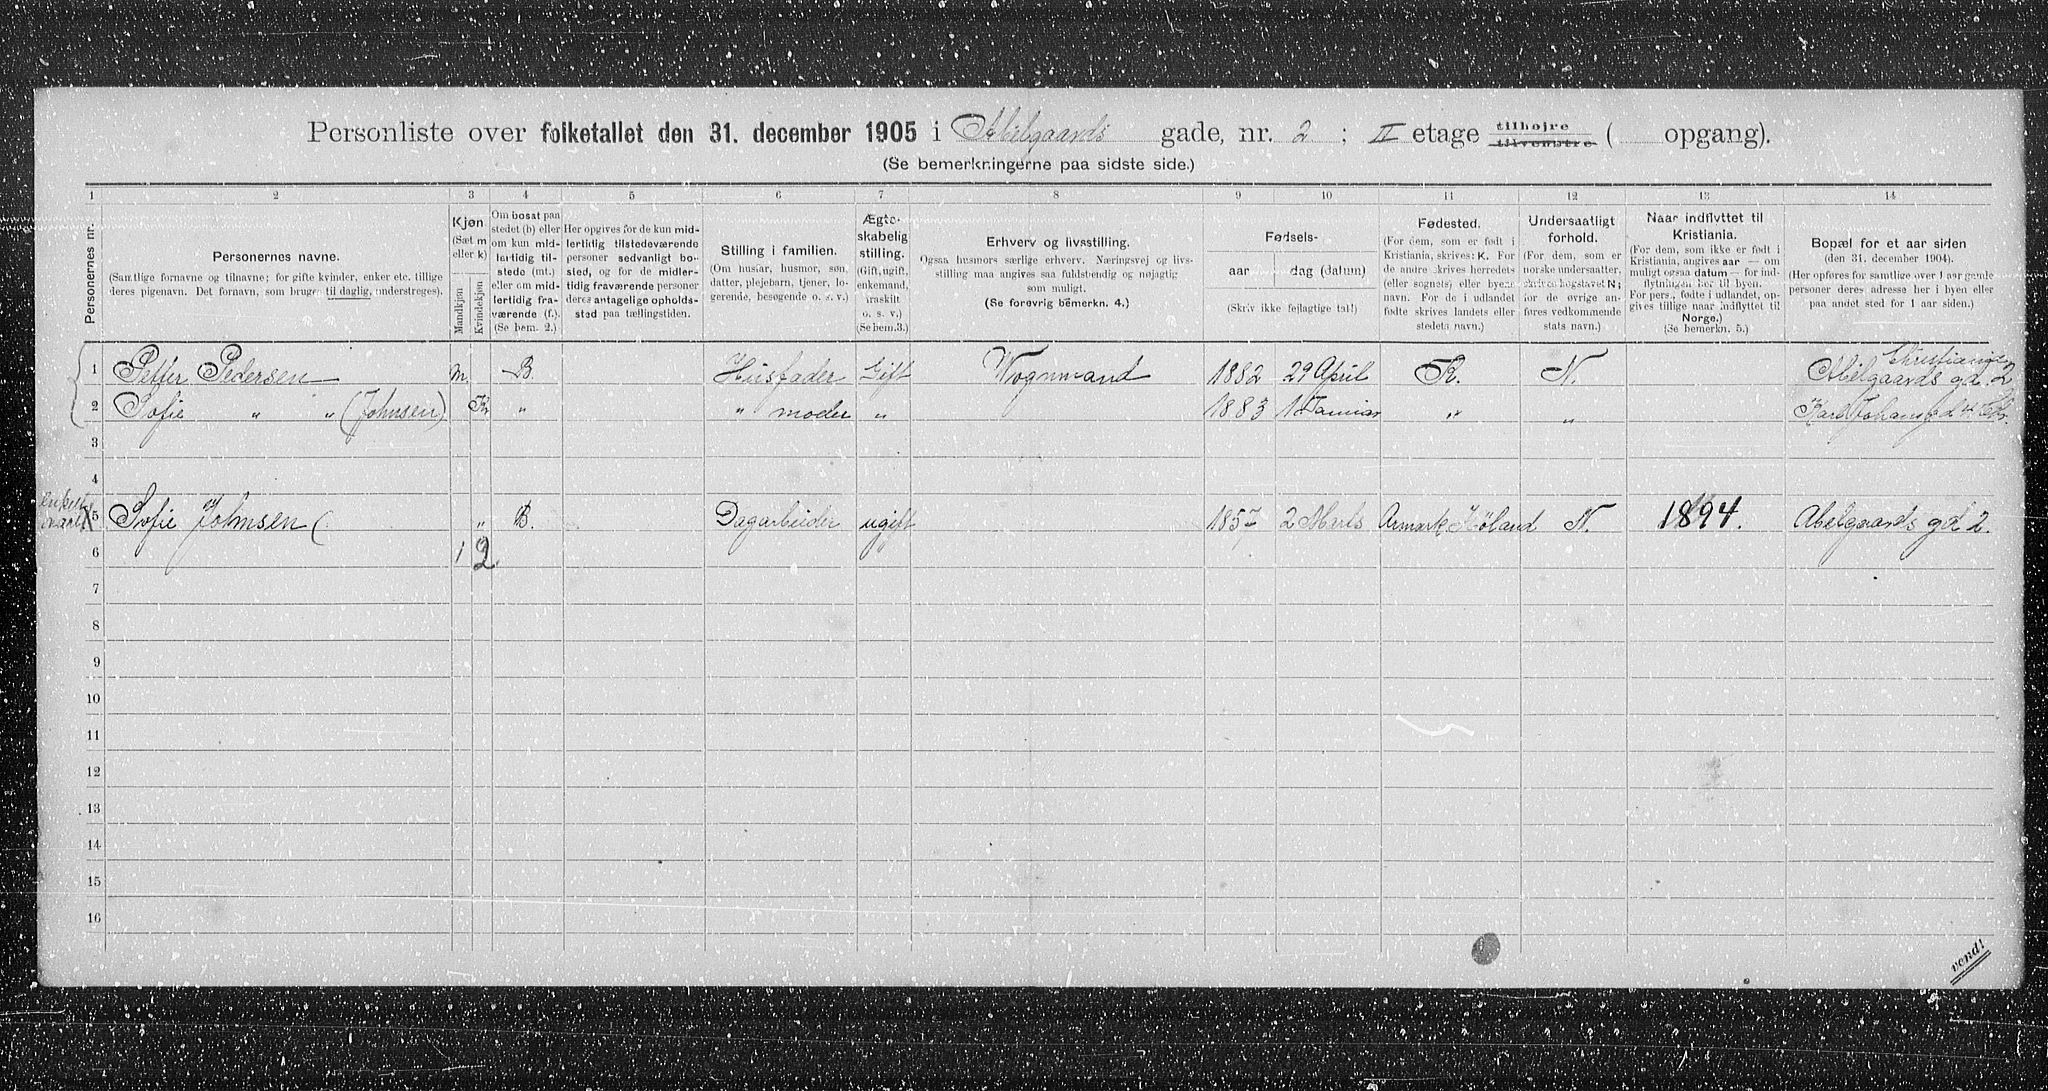 Personliste over folketallet den 31. december 1905 i Abelgaards gade, nr. 2 ; II etage tilhøjre tilvenstre ( opgang).
(Se bemerkningerne paa sidste side.)
1 2 3 4 5 6 7 8 9 10 11 12 13 14
Personernes nr.
Personernes navne.
(Samtlige fornavne og tilnavne; for gifte kvinder, enker etc. tillige
deres pigenavn. Det fornavn, som bruges til daglig, understreges).
Kjøn
(Sæt m
eller k)
Mandkjøn
Kvindekjøn
Om bosat paa
stedet (b) eller
om kun mid-
lertidig til-
stede (mt.)
eller om mid-
lertidig fra-
værende (f.).
(Se bem. 2.)
Her opgives for de kun mid-
lertidig tilstedeværende
personer sedvanligt bo-
sted, og for de midler-
tidig fraværende personer
deres antagelige opholds-
sted paa tællingstiden.
Stilling i familien.
(Om husfar, husmor, søn,
datter, plejebarn, tjener, lo-
gerende, besøgende o. s. v.)
Ægte-
skabelig
stilling.
(Gift, ugift,
enkemand,
fraskilt
o. s. v.)
(Se bem.3.)
Erhverv og livsstilling.
Ogsaa husmors særlige erhverv. Næringsvej og livs-
stilling maa angives saa fuldstændig og nøjagtig
som muligt.
(Se forøvrig bemerkn. 4.)
Fødsels-
aar dag (datum)
(Skriv ikke fejlagtige tal!)
Fødested.
(For dem, som er født i
Kristiania, skrives: K. For
de andre skrives herredets
(eller sognets) eller byens
navn. For de i udlandet
fødte skrives landets eller
stedets navn.)
Undersaatligt
forhold.
(For dem, som er
norske undersaatter,
skrives bogstavet N;
for de øvrige an-
føres vedkommende
stats navn.)
Naar indflyttet til
Kristiania.
(For dem, som ikke er født i
Kristiania, angives aar — om
muligt ogsaa datum — for ind-
flytningen her til byen.
For pers., fødte i udlandet, op-
gives tillige naar indflyttet til
Norge.)
(Se bemerkn. 5.)
Bopæl for et aar siden
(den 31. december 1904).
(Her opføres for samtlige over 1 aar gamle
personer deres adresse her i byen eller
paa andet sted for 1 aar siden.)
1 Petter Pedersen m. B. Husfader Gift Vognmand 1882 29 April K. N. Abelgaards gd. 2
2 Sofie " " (Johnsen) K " " moder " 1883 1 Januar " "
3
4
5 Sofie Johnsen ( " B. Dagarbeider ugift 1857 2 Marts Aremark Høland N. 1894. Abelgaards gd 2.
6 1 2
7
8
9
10
11
12
13
14
15
16
vend!